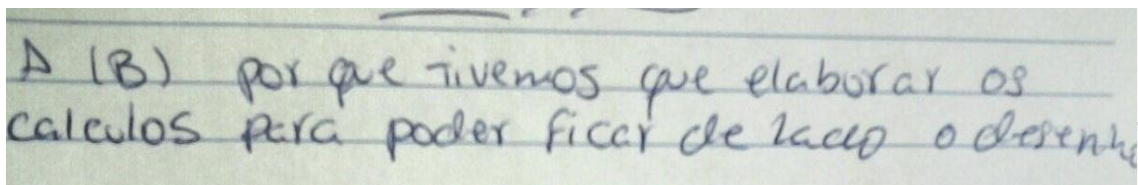 A (B) por que tivemos que elaborar os
calculos para poder ficar de lado o desenho